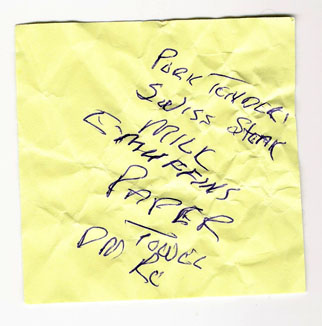 PORK TENDER'
SWISS STEAK
MILK
E-MUFFINS
PAPER
TOWEL